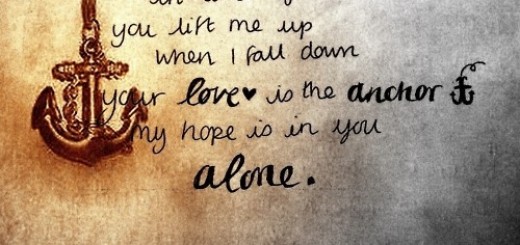 you lift me up
when I fall down
your love♥ is the anchor
my hope is in you
alone.